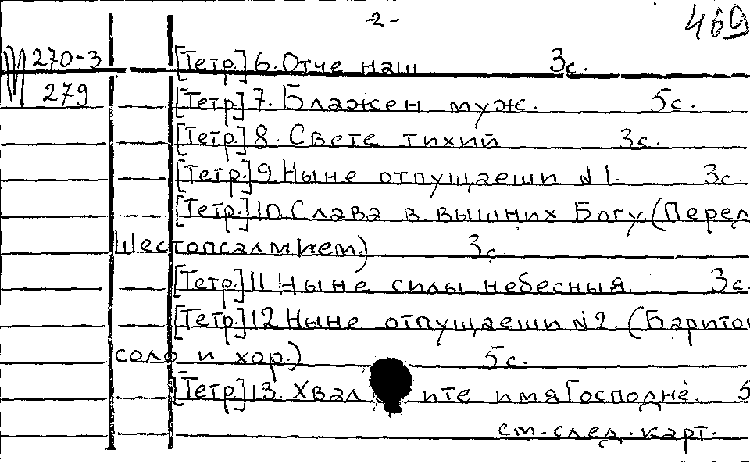 -2- 469
270-3 [Тетр.] 6. Отче наш 3с.
279 [Тетр.] 7. Блажен муж. 5с.
[Тетр.] 8. Свете тихий 3с.
[Тетр.] 9. Ныне отпущаеши №1. 3с.
[Тетр.] 10. Слава в вышних Богу. (Перед
Шестопсалмием.) 3с.
[Тетр.] 11. Ныне силы небесныя. 3с.
[Тетр.] 12. Ныне отпущаеши №2 (Баритон
соло и хор.) 5с.
[Тетр.] 13. Хвалите имя Господне. 5
см. след. карт.